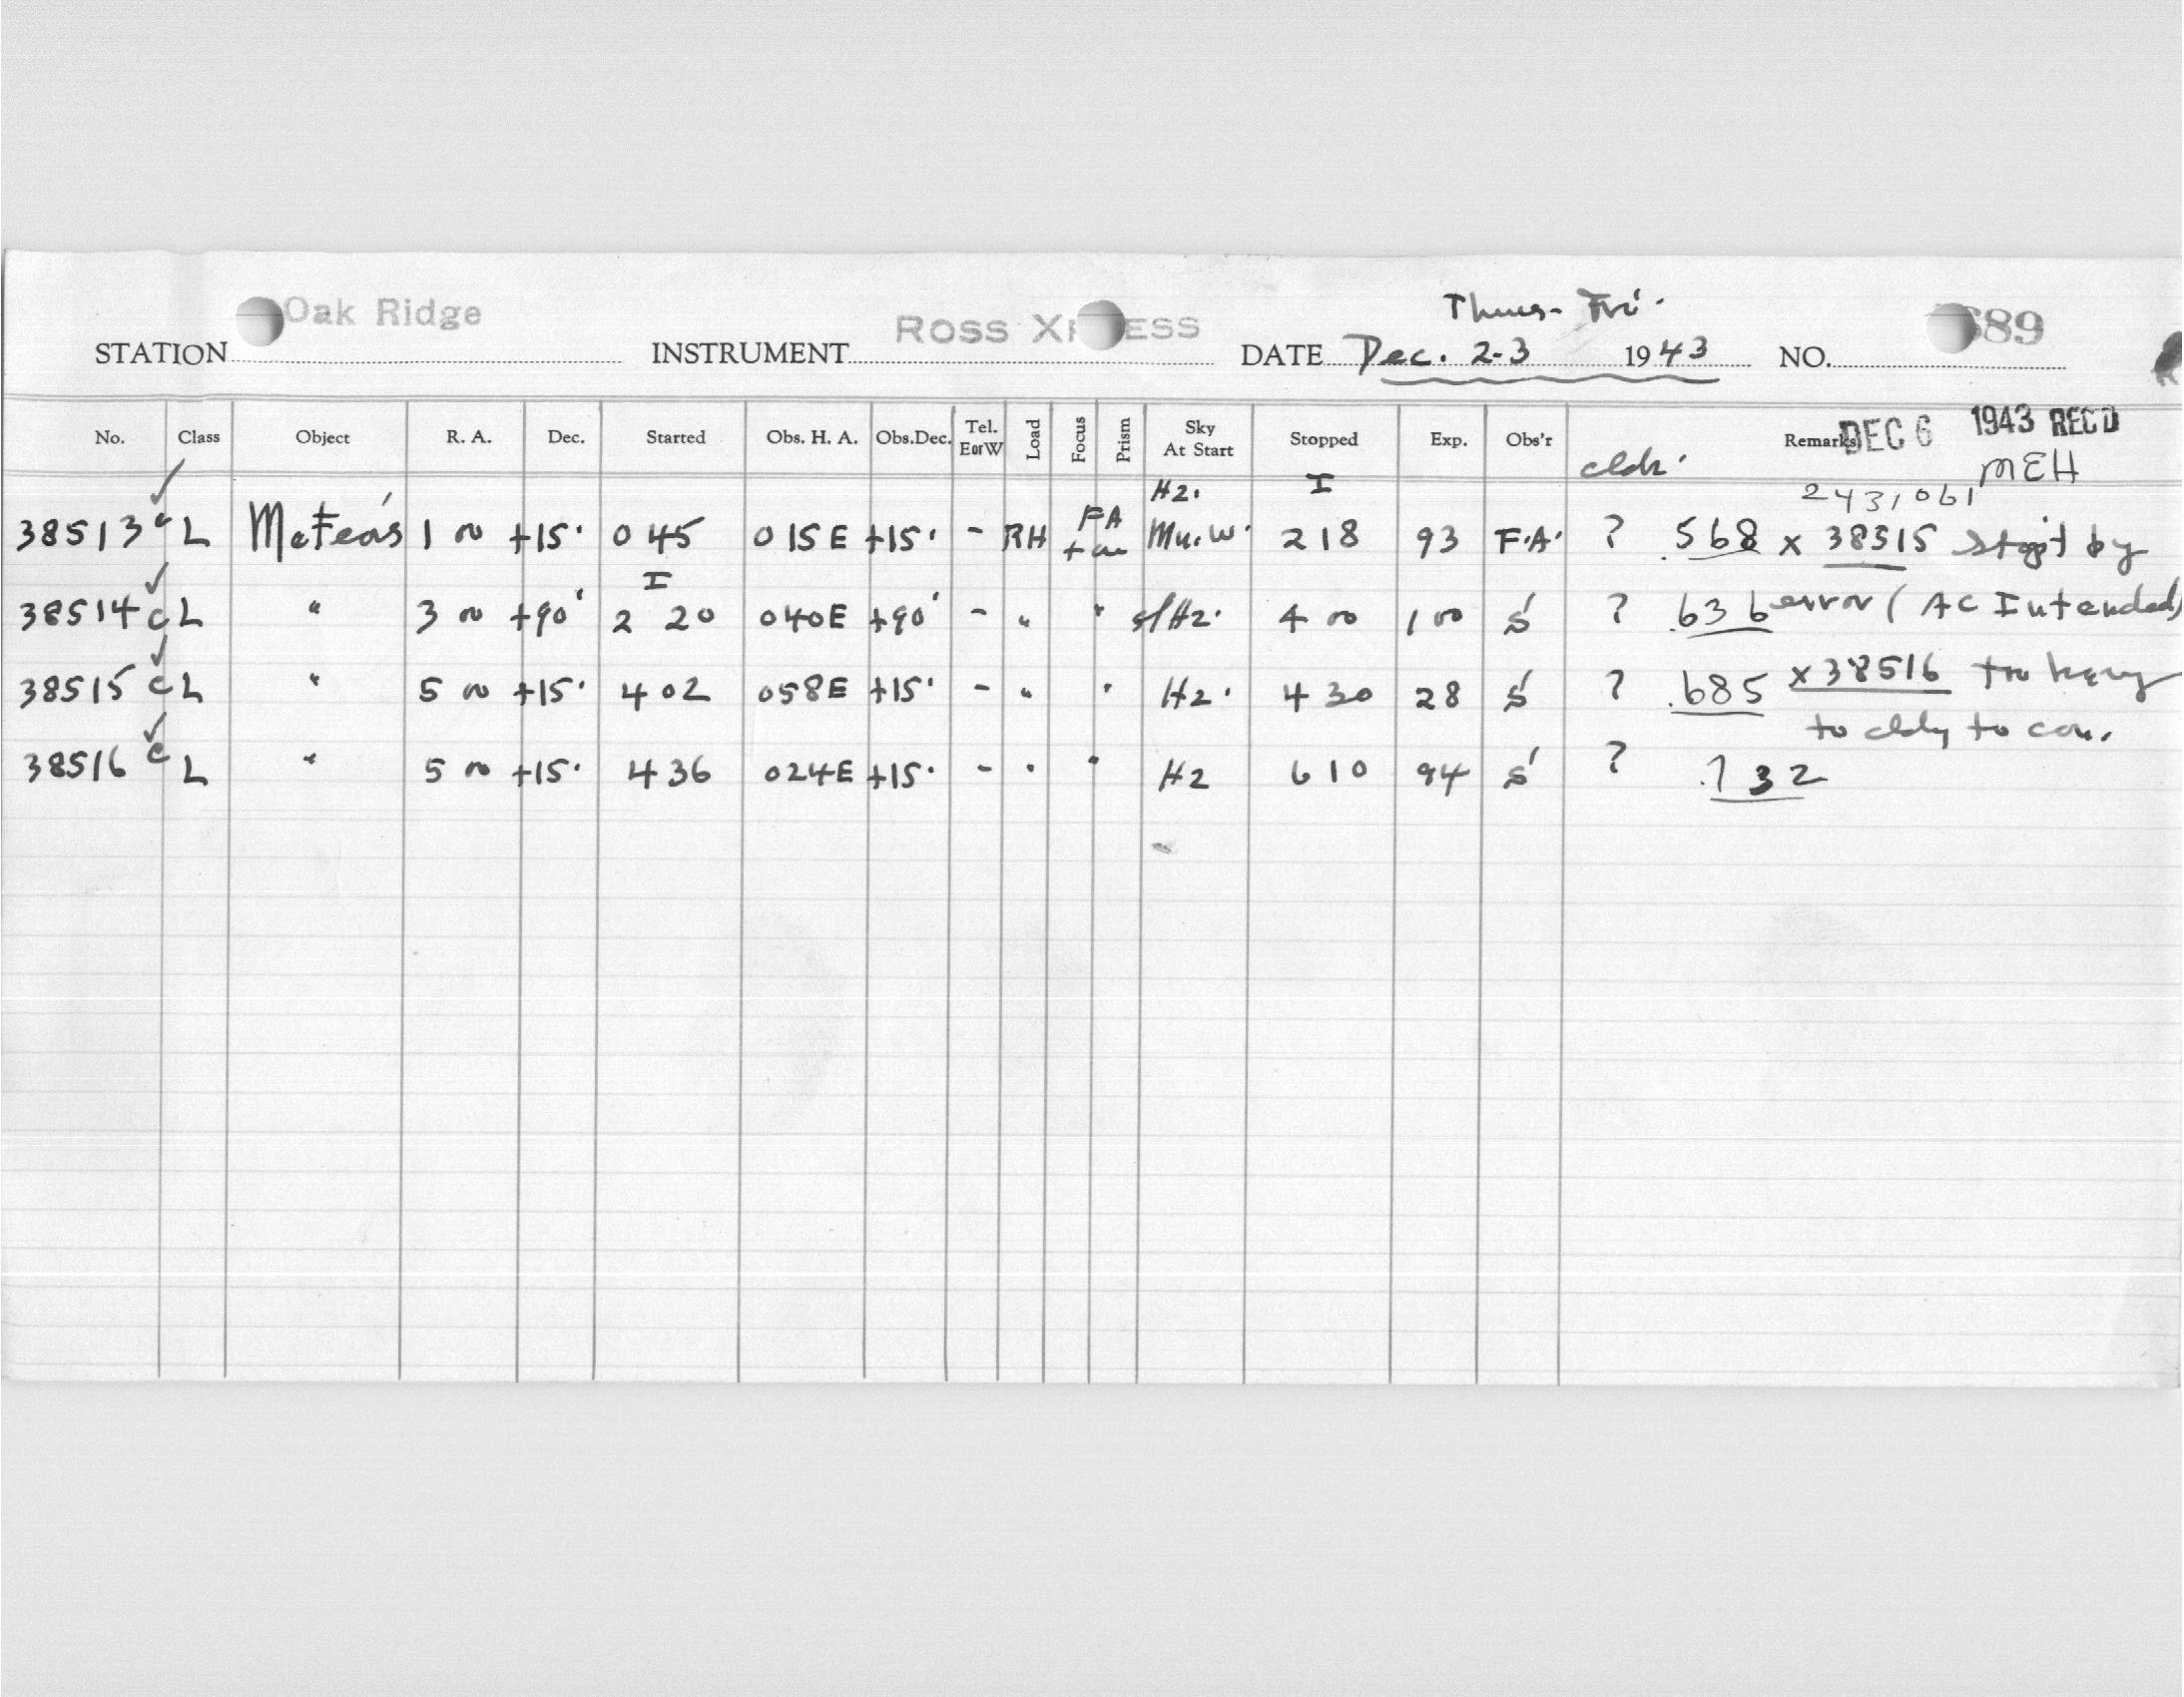 Thurs- Fri.
STATION Oak Ridge INSTRUMENT ROSS X ESS DATE Dec. 2-3 1943 NO. 689
No. Class Object R. A. Dec. Started Obs. H. A. Obs.Dec. Tel. E or W Load Focus Prism Sky At Start Stopped Exp. Obs'r Remarks DEC 6 1943 REC'D
MEH
Hz. I 2431061
38513 c L Meteors 1 00 +15° 0 45 0 15 E +15° - RH FA 218 93 F.A. ? .568 x 38515 stop't by
I
38514 c L " 3 00 +90° 2 20 0 40 E +90° - " " Hz. 4 00 1 00 S ? .636 error (AC Intended)
38515 c L " 5 00 +15° 4 02 0 58 E +15° - " " Hz. 4 30 28 S ? .685 x 38516
to cldy to con.
38516 c L " 5 00 +15° 4 36 0 24 E +15° - " " Hz 6 10 94 S ? .732